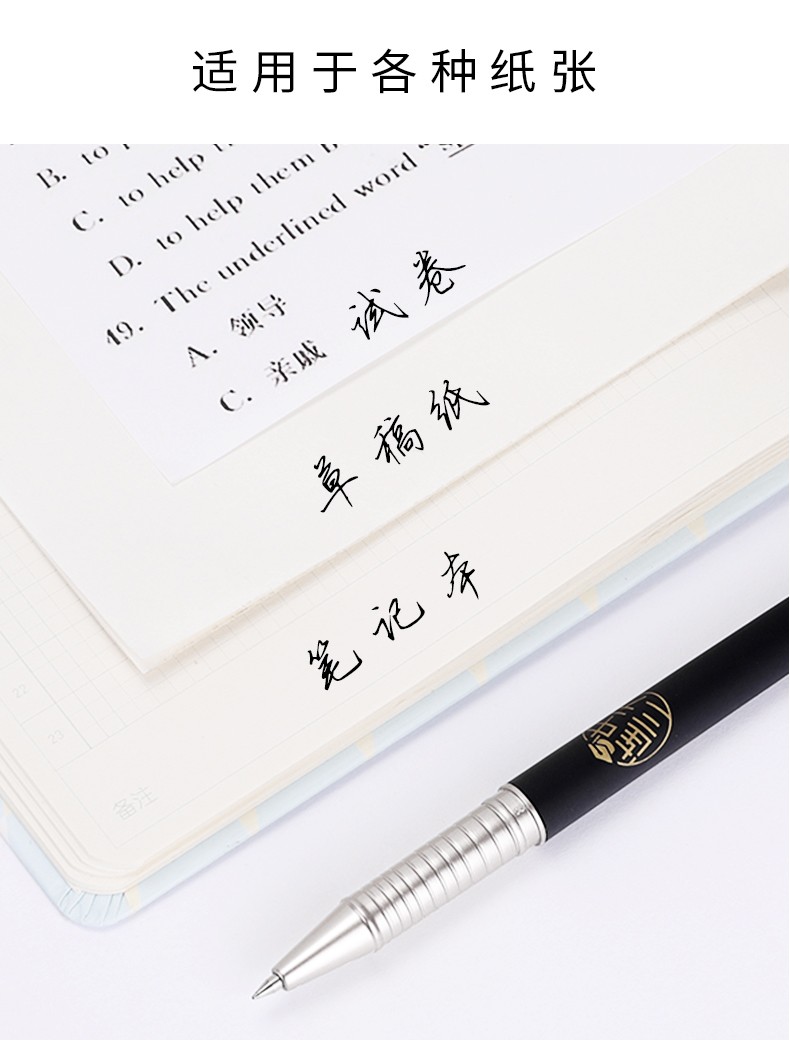 适用于各种纸张
B. to
C. to help
D. to help them
49. The underlined word "
A. 领导
C. 亲戚
试卷
草稿纸
笔记本
22
23
备注